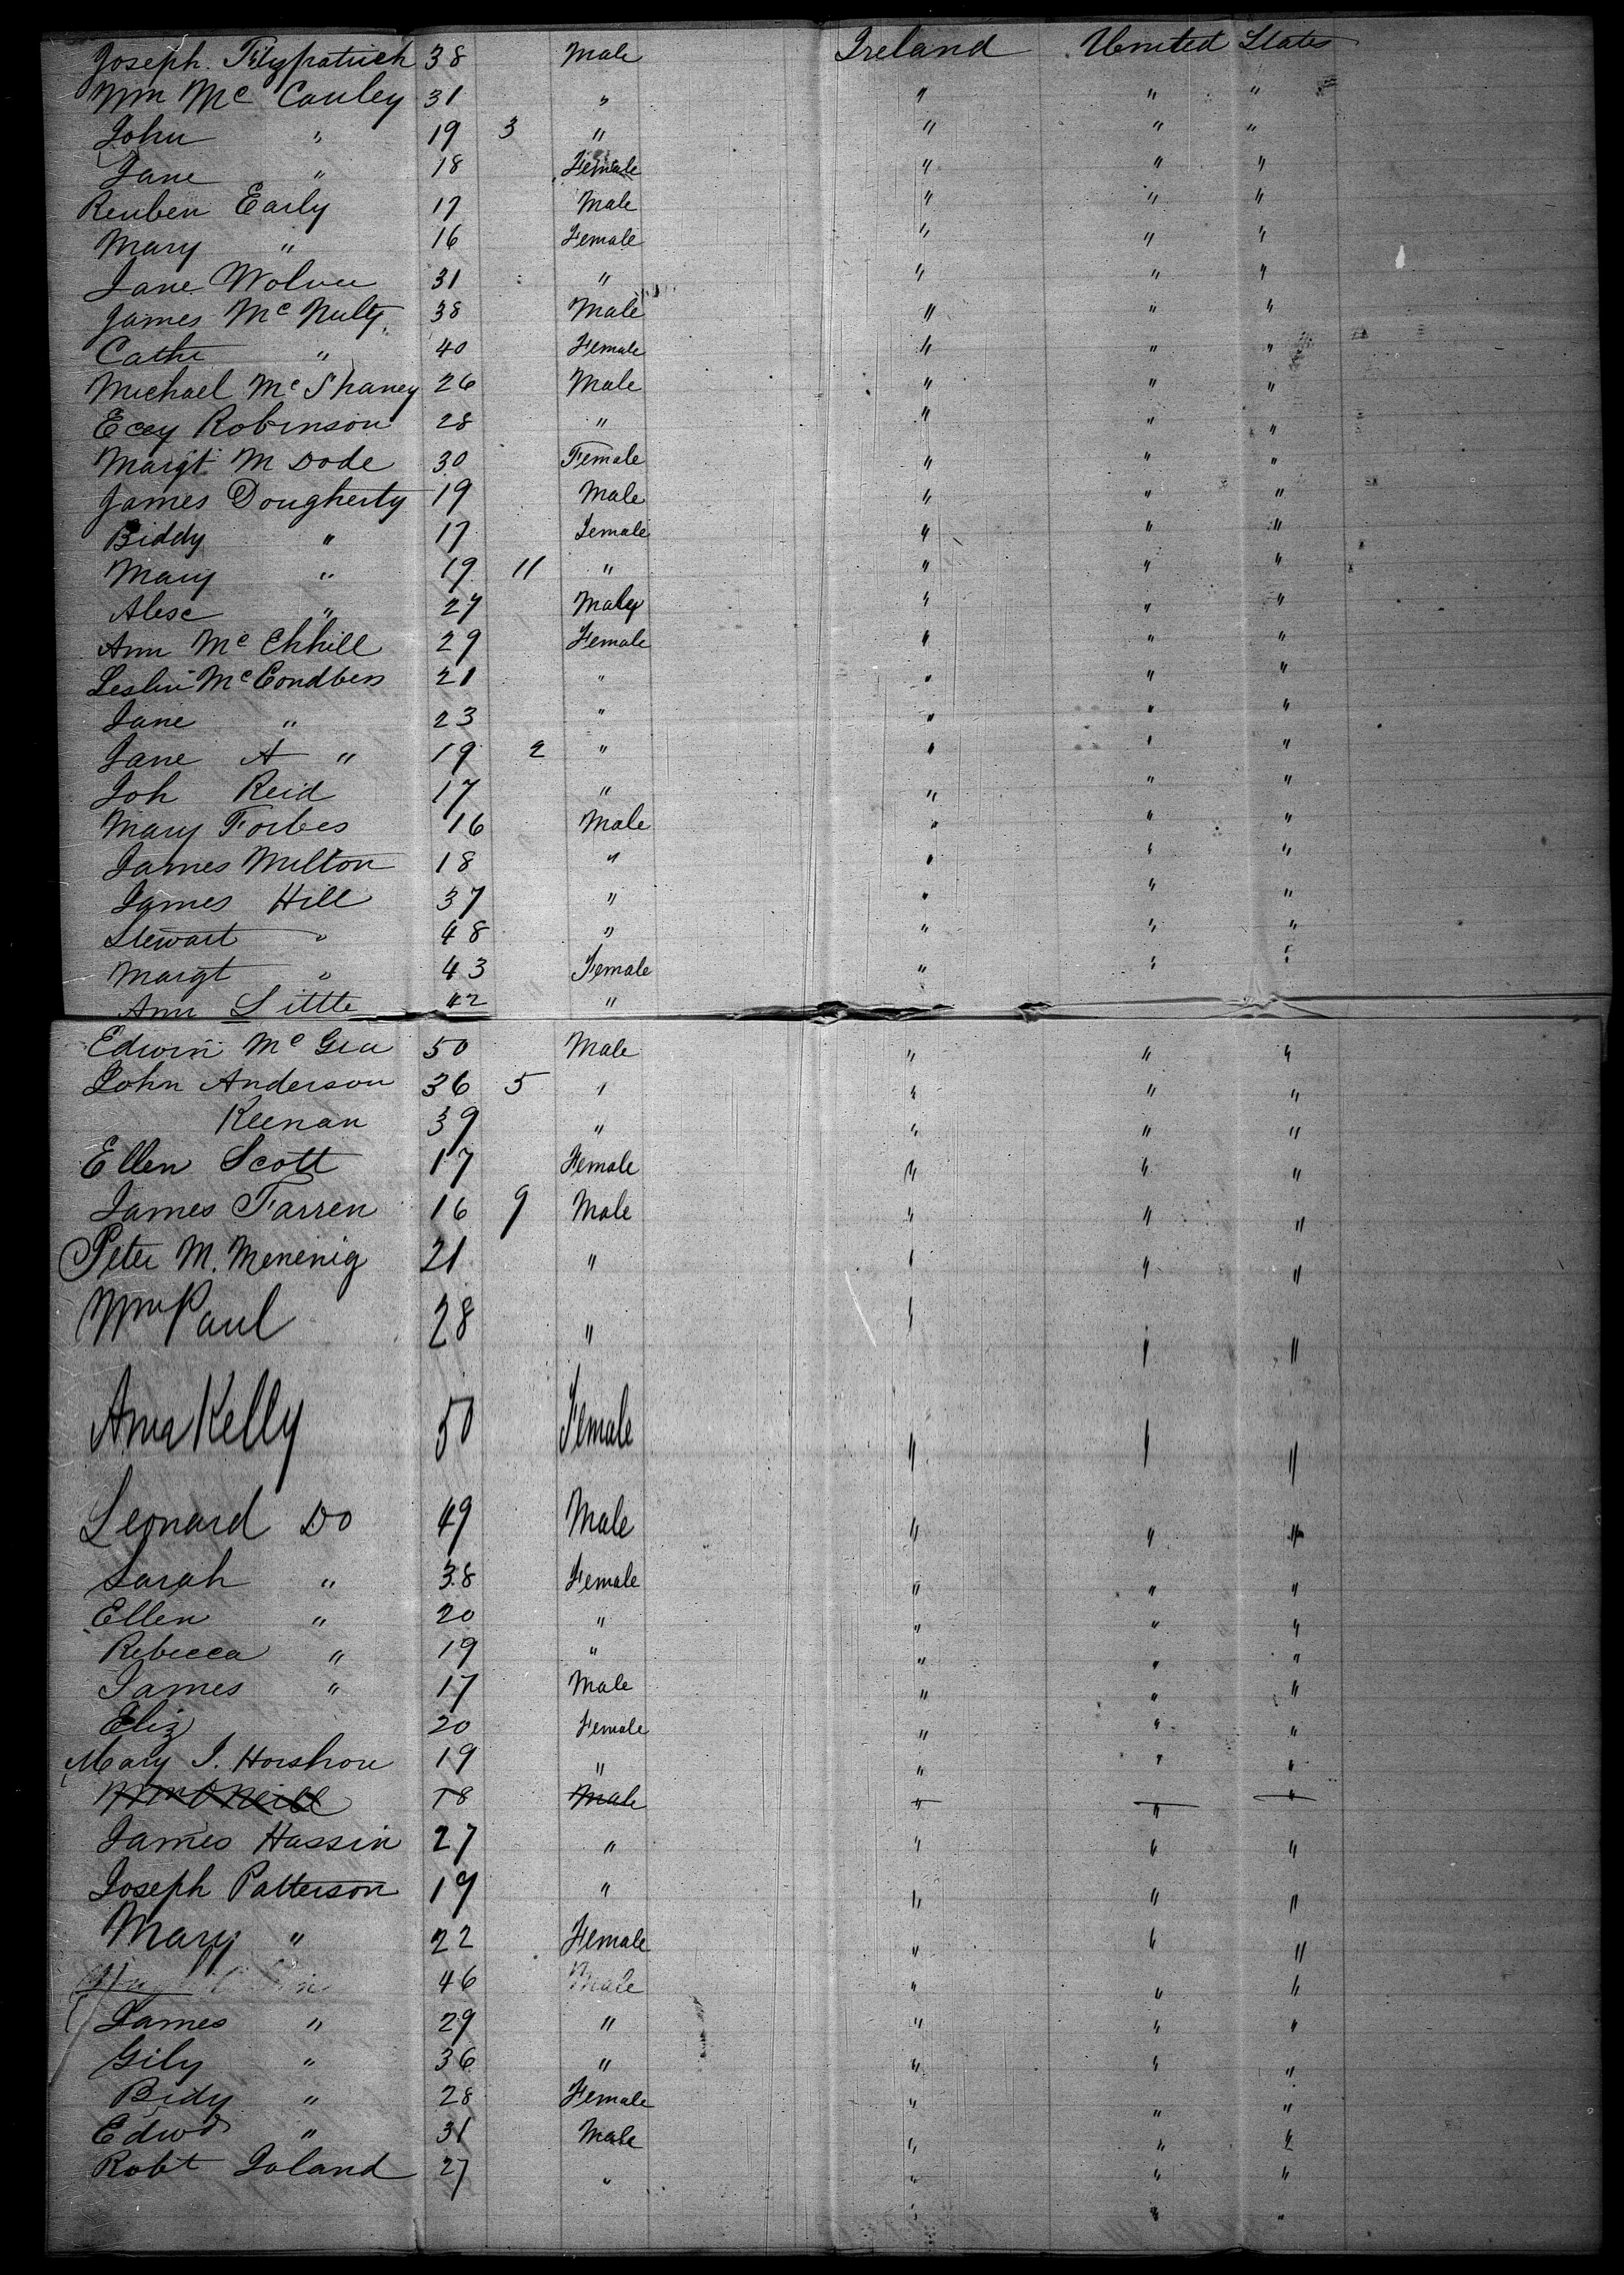 Joseph Fitzpatrick 38 Male Ireland United States
Wm Mc Cauley 31 " " " "
John " 19 3 " " " "
Jane " 18 Female " " "
Reuben Early 17 Male " " "
Mary " 16 Female " " "
Jane 31 " " " "
James Mc Nulty 38 Male " " "
Cathe " 40 Female " " "
Michael Mc Shaney 26 Male " " "
Robinson 28 " " " "
Margt M Dode 30 Female " " "
James Dougherty 19 Male " " "
Biddy " 17 Female " " "
Mary " 19 11 " " " "
Alese " 27 Male " " "
Ann Mc 29 Female " " "
Mc 21 " " " "
Jane " 23 " " " "
Jane A " 19 2 " " " "
Joh Reid 17 " " " "
Mary Forbes 16 Male " " "
James Milton 18 " " " "
James Hill 37 " " " "
Stewart " 48 " " " "
Margt " 43 Female " " "
Ann Little 42 "
Edwin Mc 50 Male " " "
John Anderson 36 5 " " " "
Keenan 39 " " " "
Ellen Scott 17 Female " " "
James Farren 16 9 Male " " "
Peter M. Menenig 21 " " " "
Wm Paul 28 " " " "
Ann Kelly 50 Female " " "
Leonard Do 49 Male " " "
Sarah " 38 Female " " "
Ellen " 20 " " " "
Rebecca " 19 " " " "
James " 17 Male " " "
Eliz 20 Female " " "
Mary J. 19 " " " "
Wm O Neill 18 Male " " "
James Hassin 27 " " " "
Joseph Patterson 19 " " " "
Mary " 22 Female " " "
46 Male " " "
James " 29 " " " "
Gily " 36 " " " "
Bidy " 28 Female " " "
Edwd " 31 Male " " "
Robt Toland 27 " " " "
" " "